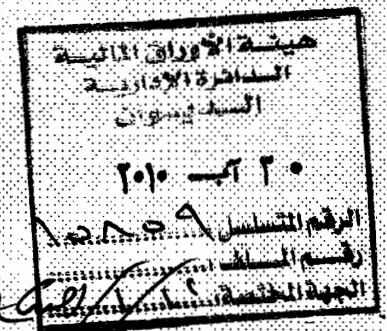 هيئة الأوراق المالية
الدائرة الإدارية
الديوان
٢٠ آب ٢٠١٠
الرقم المتسلسل ١٠٨٥٩
رقم الملف
الجهة المختصة